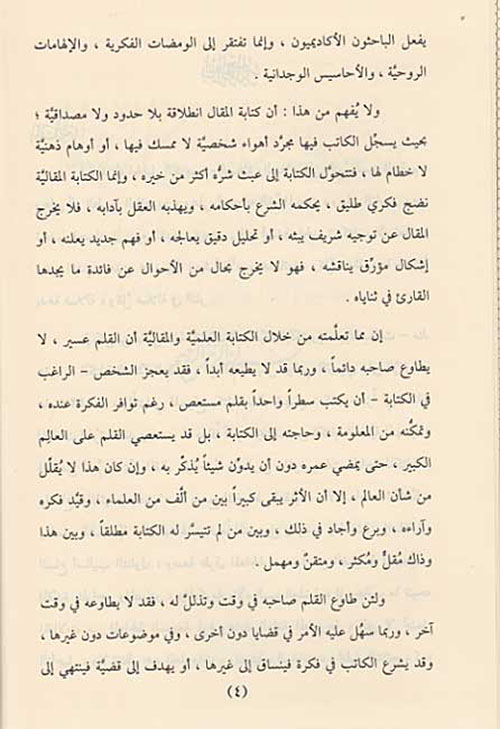 يفعل الباحثون الأكاديميون ، وإنما تفتقر إلى الومضات الفكرية ، والإلهامات
الروحيَّة ، والأحاسيس الوجدانية .
ولا يُفهم من هذا : أن كتابة المقال انطلاقة بلا حدود ولا مصداقيَّة ؛
بحيث يسجِّل الكاتب فيها مجرَّد أهواء شخصيَّة لا ممسك فيها ، أو أوهام ذهنيَّة
لا خطام لها ، فتتحوَّل الكتابة إلى عبث شرُّه أكثر من خيره ، وإنما الكتابة المقاليَّة
نضج فكري طليق ، يحكمه الشرع بأحكامه ، ويهذبه العقل بآدابه ، فلا يخرج
المقال عن توجيه شريف يبثه ، أو تحليل دقيق يعالجه ، أو فهم جديد يعلنه ، أو
إشكال مؤرِّق يناقشه ، فهو لا يخرج بحال من الأحوال عن فائدة ما يجدها
القارئ في ثناياه .
إن مما تعلَّمته من خلال الكتابة العلميَّة والمقاليَّة أن القلم عسير ، لا
يطاوع صاحبه دائماً ، وربما قد لا يطيعه أبداً ، فقد يعجز الشخص – الراغب
في الكتابة – أن يكتب سطراً واحداً بقلم مستعص ، رغم توافر الفكرة عنده ،
وتمكُّنه من المعلومة ، وحاجته إلى الكتابة ، بل قد يستعصي القلم على العالِم
الكبير ، حتى يمضي عمره دون أن يدوِّن شيئاً يُذكّر به ، وإن كان هذا لا يُقلّل
من شأن العالم ، إلا أن الأثر يبقى كبيراً بين من ألَّف من العلماء ، وقيَّد فكره
وآراءه ، وبرع وأجاد في ذلك ، وبين من لم تتيسَّر له الكتابة مطلقاً ، وبين هذا
وذاك مُقلٌّ ومُكثر، ومتقنٌ ومهمل .
ولئن طاوع القلم صاحبه في وقت وتذللَّ له ، فقد لا يطاوعه في وقت
آخر ، وربما سهُل عليه الأمر في قضايا دون أخرى ، وفي موضوعات دون غيرها ،
وقد يشرع الكاتب في فكرة فينساق إلى غيرها ، أو يهدف إلى قضيَّة فينتهي إلى
(٤)